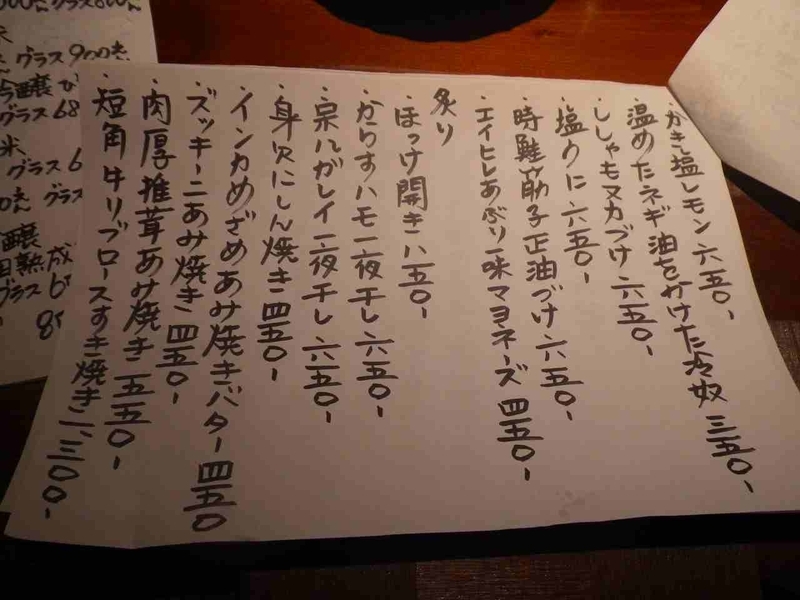 ・かき塩レモン 六五〇-
・温めたネギ油をかけた冷奴 三五〇-
・ししゃもマカづけ 六五〇-
・塩うに 六五〇-
・時鮭筋子正油づけ 六五〇-
・エイヒレあぶり一味マヨネーズ 四五〇-
炙り
・ほっけ開き 八五〇-
・からすハモ一夜干し 六五〇-
・宗八ガレイ一夜干し 六五〇-
・身欠にしん焼き 四五〇-
・インカめざめあみ焼きバター 四五〇
・ズッキーニあみ焼き 四五〇-
・肉厚椎茸あみ焼き 五五〇-
・短角牛リブロースすき焼き 一、三〇〇-
グラス800
米
グラス900
吟醸
グラス68
米
グラス6
グラス
醸
熟成
グラス6
8